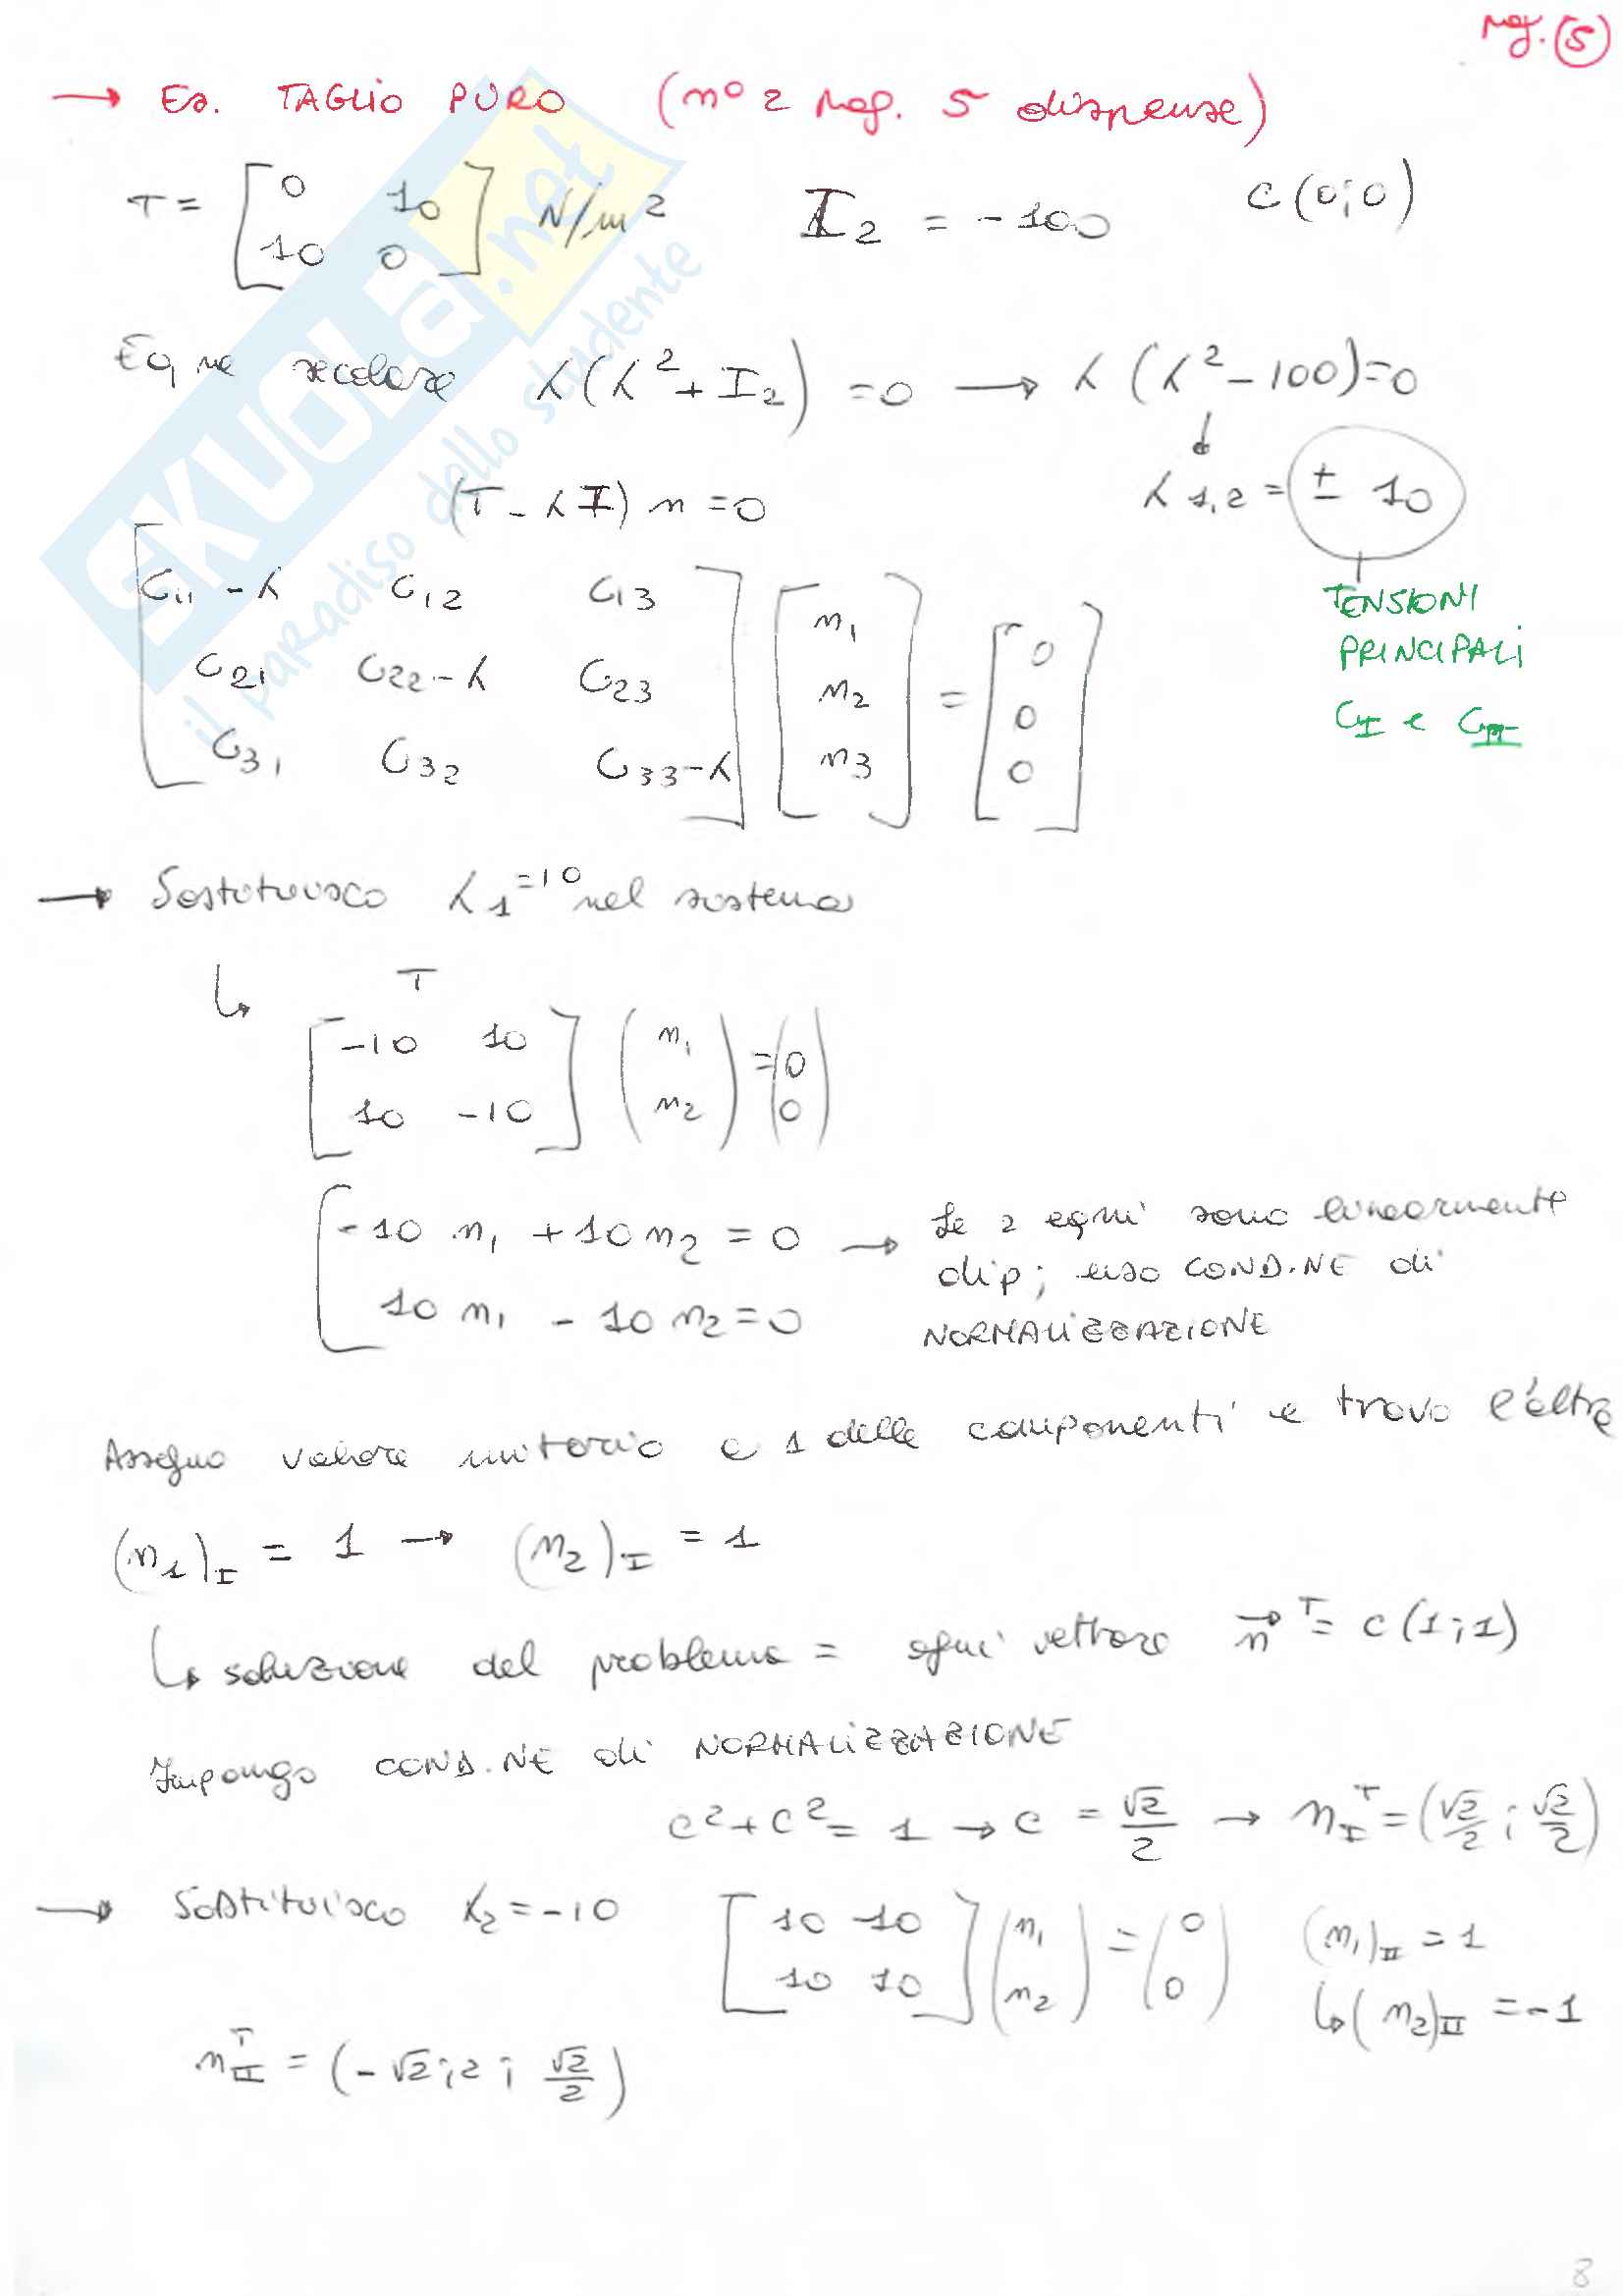 pag. (5)
→ Es. TAGLIO PURO (n° 2 pag. 5 dispense)
T = [0 10 N/m² I₂ = -100 C(0;0)
10 0]
Eq.ne secolare λ(λ² + I₂) = 0 → λ(λ² - 100) = 0
(T - λI) n = 0 λ 1,2 = ± 10
TENSIONI
PRINCIPALI
σI e σII
[σ11 - λ σ12 σ13] [n1] = [0]
[σ21 σ22 - λ σ23] [n2] [0]
[σ31 σ32 σ33 - λ] [n3] [0]
→ Sostituisco λ1 = 10 nel sistema
↳ T
[-10 10] (n1) = (0)
[10 -10] (n2) (0)
-10 n1 + 10 n2 = 0 → Le 2 eqni sono linearmente
dip; uso COND.NE di
10 n1 - 10 n2 = 0
NORMALIZZAZIONE
Assegno valore unitario a 1 delle componenti e trovo l'altra
(n1)I = 1 → (n2)I = 1
↳ soluzione del problema = ogni vettore n⃗ᵀ = c(1;1)
Impongo COND.NE di NORMALIZZAZIONE
c² + c² = 1 → c = √2/2 → nIᵀ = (√2/2 ; √2/2)
→ Sostituisco λ2 = -10 [10 10] (n1) = (0) (n1)II = 1
[10 10] (n2) (0) ↳ (n2)II = -1
nIIᵀ = (-√2;2 ; √2/2)
8
SKUOLA.net
il paradiso dello studente